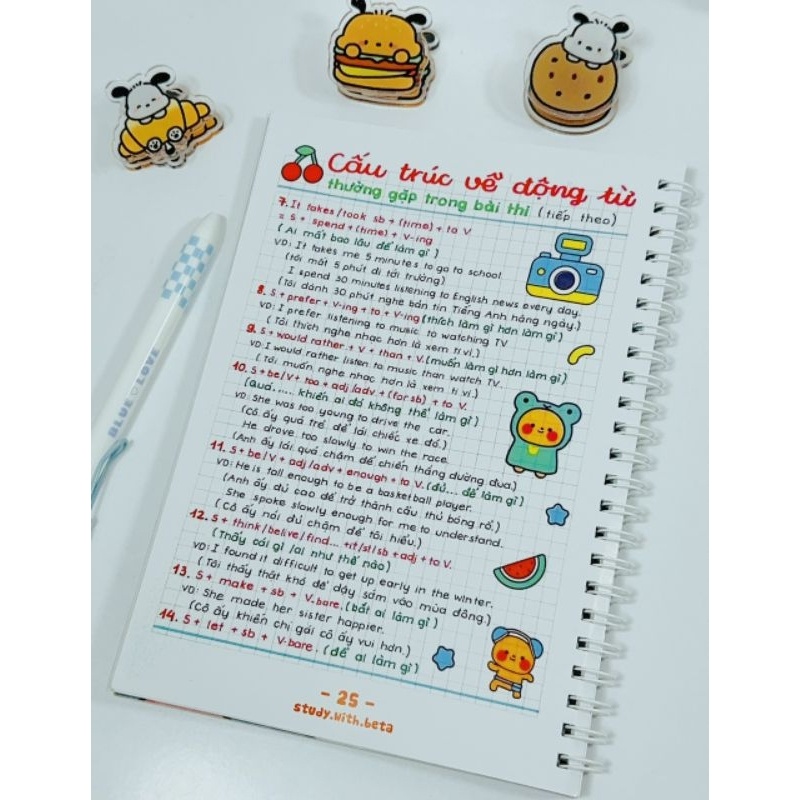 Cấu trúc về động từ
thường gặp trong bài thi (tiếp theo)
7. It takes/took sb + (time) + to V
= S + spend + (time) + V-ing
(Ai mất bao lâu để làm gì)
VD: It takes me 5 minutes to go to school.
(tôi mất 5 phút đi tới trường)
I spend 30 minutes listening to English news every day.
(Tôi dành 30 phút nghe bản tin Tiếng Anh hàng ngày.)
8. S + prefer + V-ing + to + V-ing (thích làm gì hơn làm gì)
VD: I prefer listening to music to watching TV
(Tôi thích nghe nhạc hơn là xem ti vi.)
9. S + would rather + V + than + V. (muốn làm gì hơn làm gì)
VD: I would rather listen to music than watch TV.
(Tôi muốn nghe nhạc hơn là xem ti vi.)
10. S + be/V + too + adj/adv + (for sb) + to V.
(Quá...... khiến ai đó không thể làm gì)
VD: She was too young to drive the car.
(Cô ấy quá trẻ để lái chiếc xe đó.)
He drove too slowly to win the race.
(Anh ấy lái quá chậm để chiến thắng đường đua.)
11. S + be/V + adj/adv + enough + to V. (đủ... để làm gì)
VD: He is tall enough to be a basketball player.
(Anh ấy đủ cao để trở thành cầu thủ bóng rổ.)
She spoke slowly enough for me to understand.
(Cô ấy nói đủ chậm để tôi hiểu.)
12. S + think/belive/find... + it/st/sb + adj + to V.
(Thấy cái gì/ai như thế nào)
VD: I found it difficult to get up early in the winter.
(Tôi thấy thật khó để dậy sớm vào mùa đông.)
13. S + make + sb + V.bare. (bắt ai làm gì)
VD: She made her sister happier.
(Cô ấy khiến chị gái cô ấy vui hơn.)
14. S + let + sb + V-bare. (để ai làm gì)
- 25 -
study.with.beta
BLUE LOVE